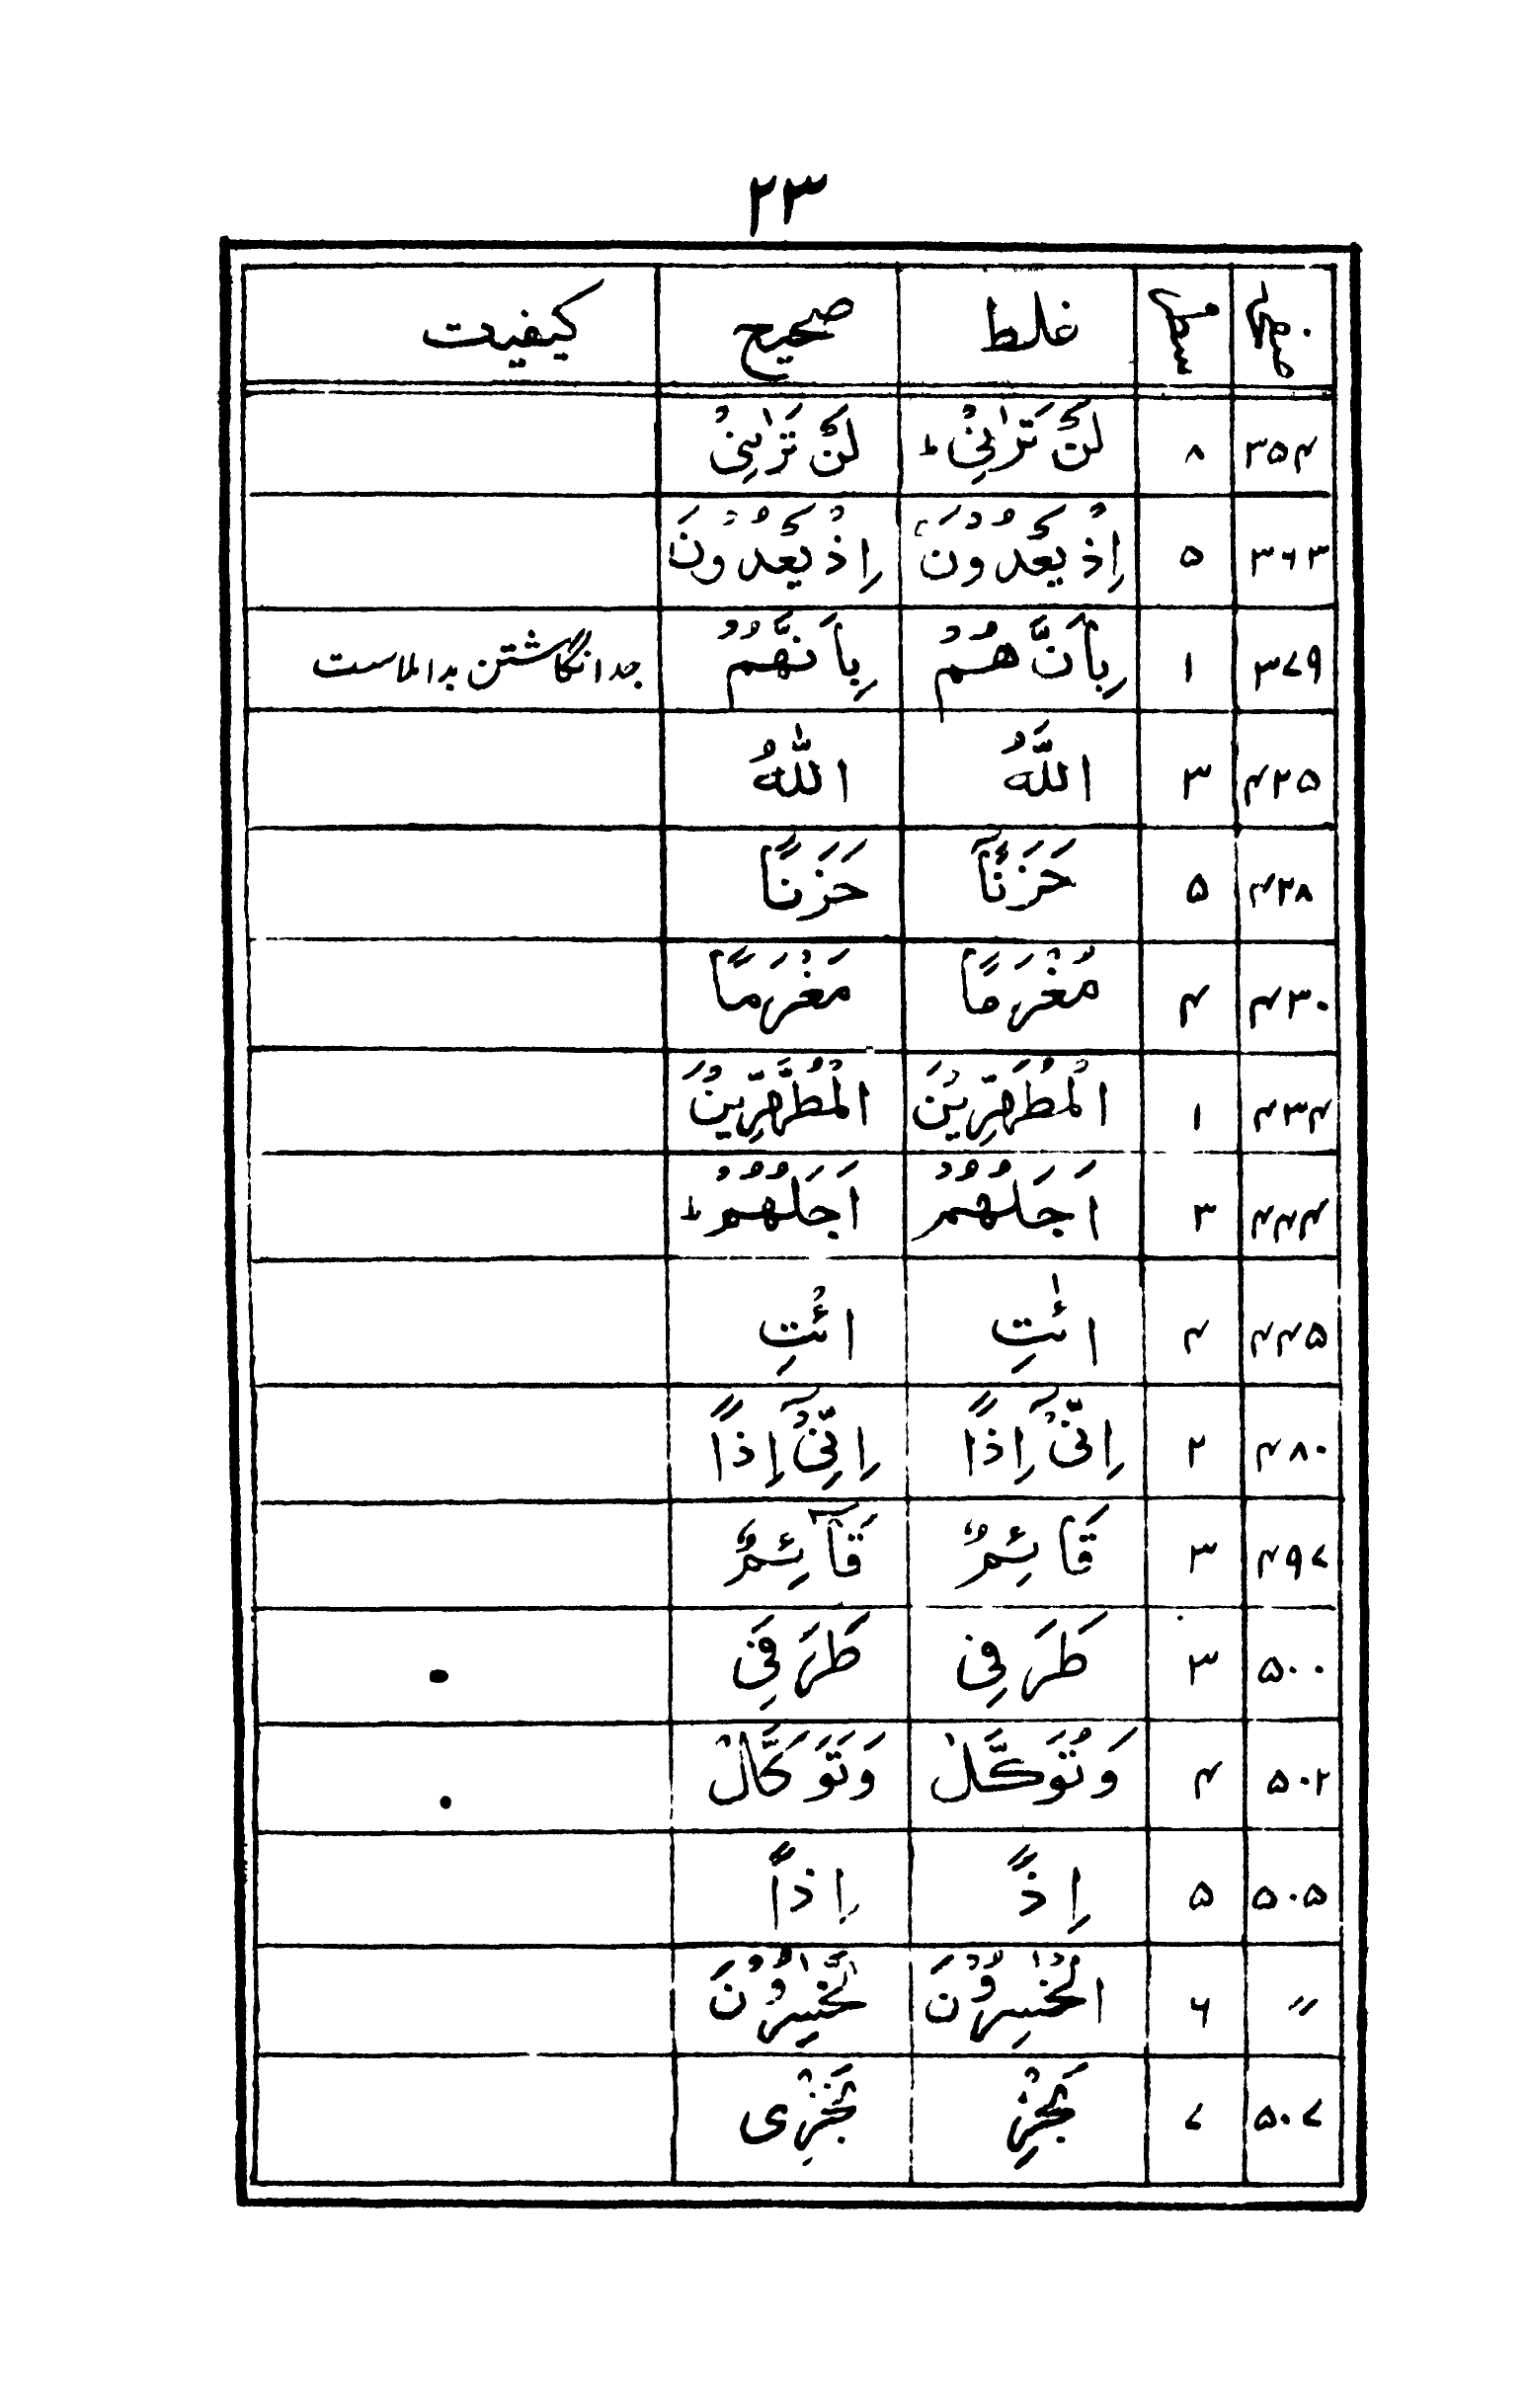 ۲۳
صفحہ سطر غلط صحیح کیفیت
۳۵۴ ۸ لَنْ تَرٰنِیْ ط لَنْ تَرٰىنِیْ
۳۶۳ ۵ اِذْ یَعْدُوْنَ اِذْ یَعْدُوْنَ
۳۷۹ ۱ بِاَنَّ هُمْ بِاَنَّهُمْ جدا نگاشتن بد املاست
۴۲۵ ۳ اللّٰهُ اللّٰهُ
۴۲۸ ۵ حَزَنًآ حَزَنًا
۴۳۰ ۴ مُغْرَمًا مَغْرَمًا
۴۳۴ ۱ الْمُطَهِّرِیْنَ الْمُطَّهِّرِیْنَ
۴۴۴ ۳ اَجَلُهُمْ اَجَلُهُمْ ط
۴۴۵ ۴ ائٰتِ ائْتِ
۴۸۰ ۲ اِنِّیْٓ اِذًا اِنِّیْٓ اِذًا
۴۹۷ ۳ قَائِمٌ قَآئِمٌ
۵۰۰ ۳ طَرَفِی طَرَفَیِ
۵۰۲ ۴ وَتُوَكَّلْ وَتَوَكَّلْ
۵۰۵ ۵ اِذً اِذًا
〃 ۶ الْخٰسِرُوْنَ لَّخٰسِرُوْنَ
۵۰۷ ۷ نَجْزِ نَجْزِی